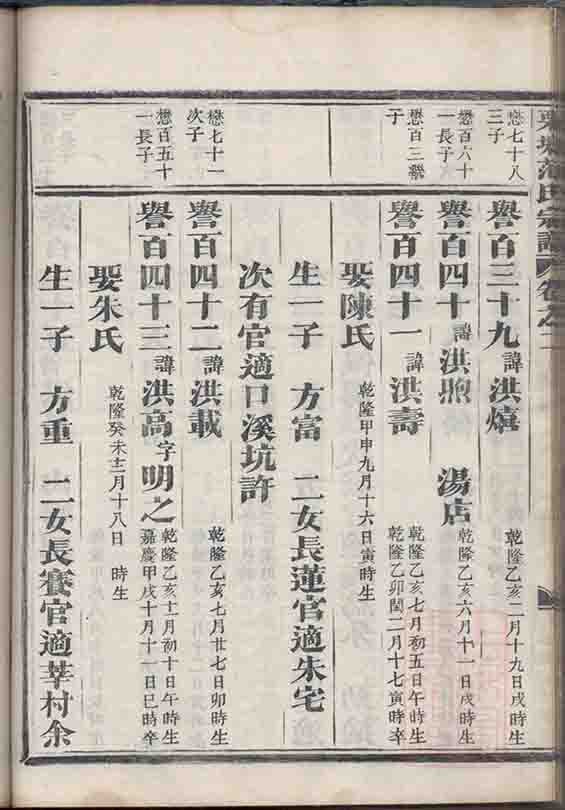 范氏宗譜 卷之二
懋七十八
三子
譽百三十九 諱洪熺 乾隆乙亥二月十九日戌時生
懋百六十
一長子
譽百四十 諱洪煦 湯店 乾隆乙亥六月十一日戌時生
懋百三
子
譽百四十一 諱洪壽 乾隆乙亥七月初五日午時生
乾隆乙卯閏二月十七寅時卒
娶陳氏 乾隆甲申九月十六日寅時生
生一子 方富 二女長蓮官適朱宅
次有官適口溪坑許
懋七十一
次子
譽百四十二 諱洪載 乾隆乙亥七月廿七日卯時生
懋百五十
一長子
譽百四十三 諱洪高字明之 乾隆乙亥十一月初十日午時生
嘉慶甲戌十月十一日巳時卒
娶朱氏 乾隆癸未十二月十八日 時生
生一子 方重 二女長賽官適莘村余